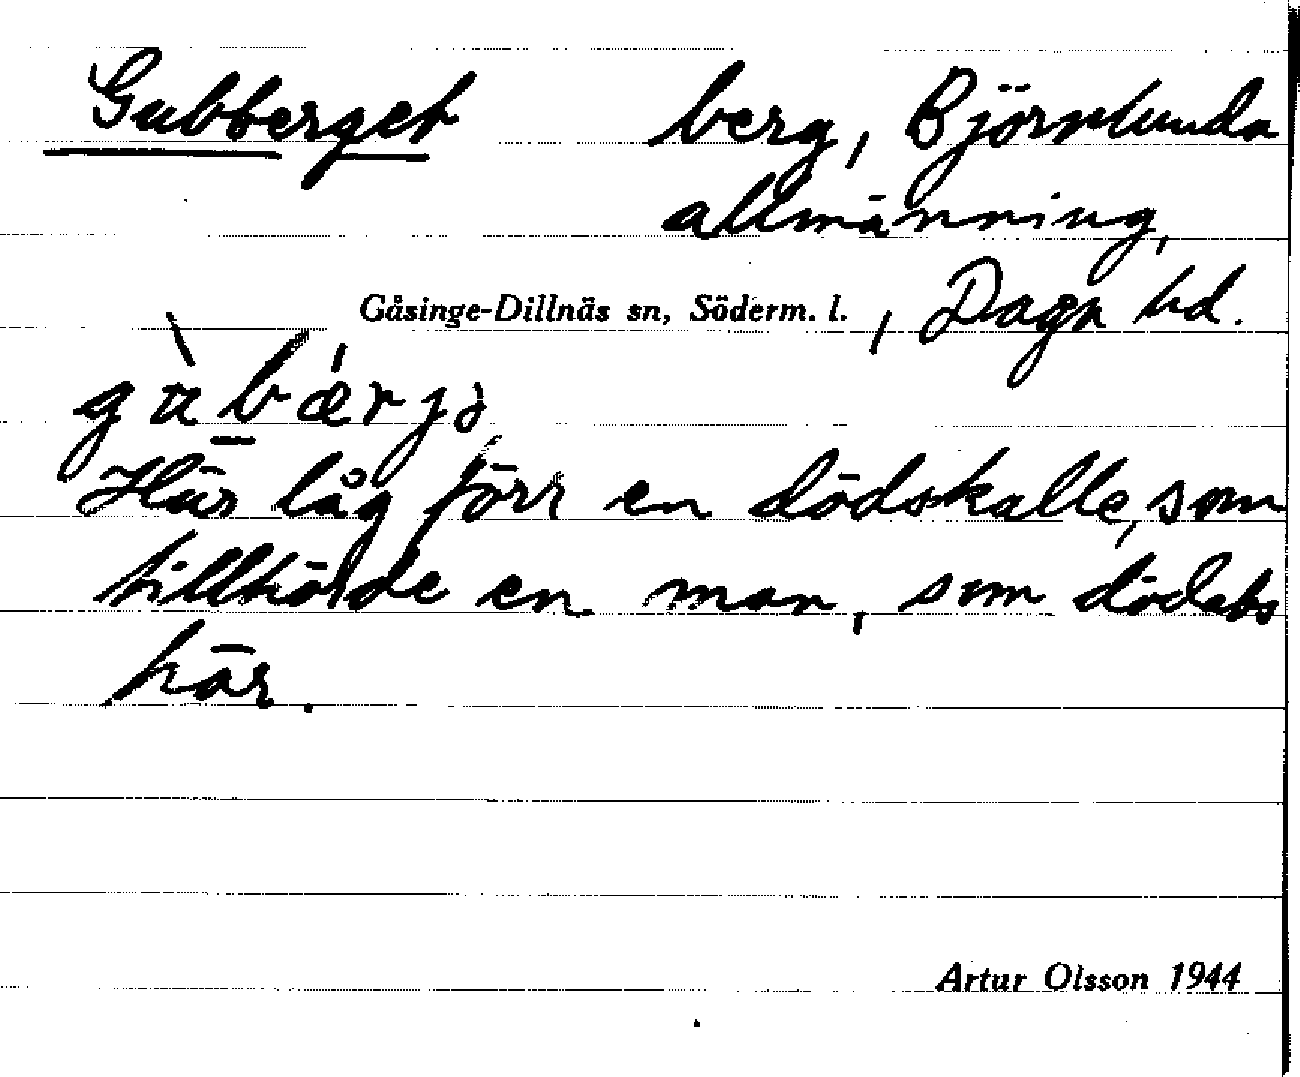 Gubberget berg, Björnlunda
allmänning,
Gåsinge-Dillnäs sn, Söderm. l., Daga hd.
Här låg förr en dödskalle, som
tillhörde en man, som dödats
här.
Artur Olsson 1944